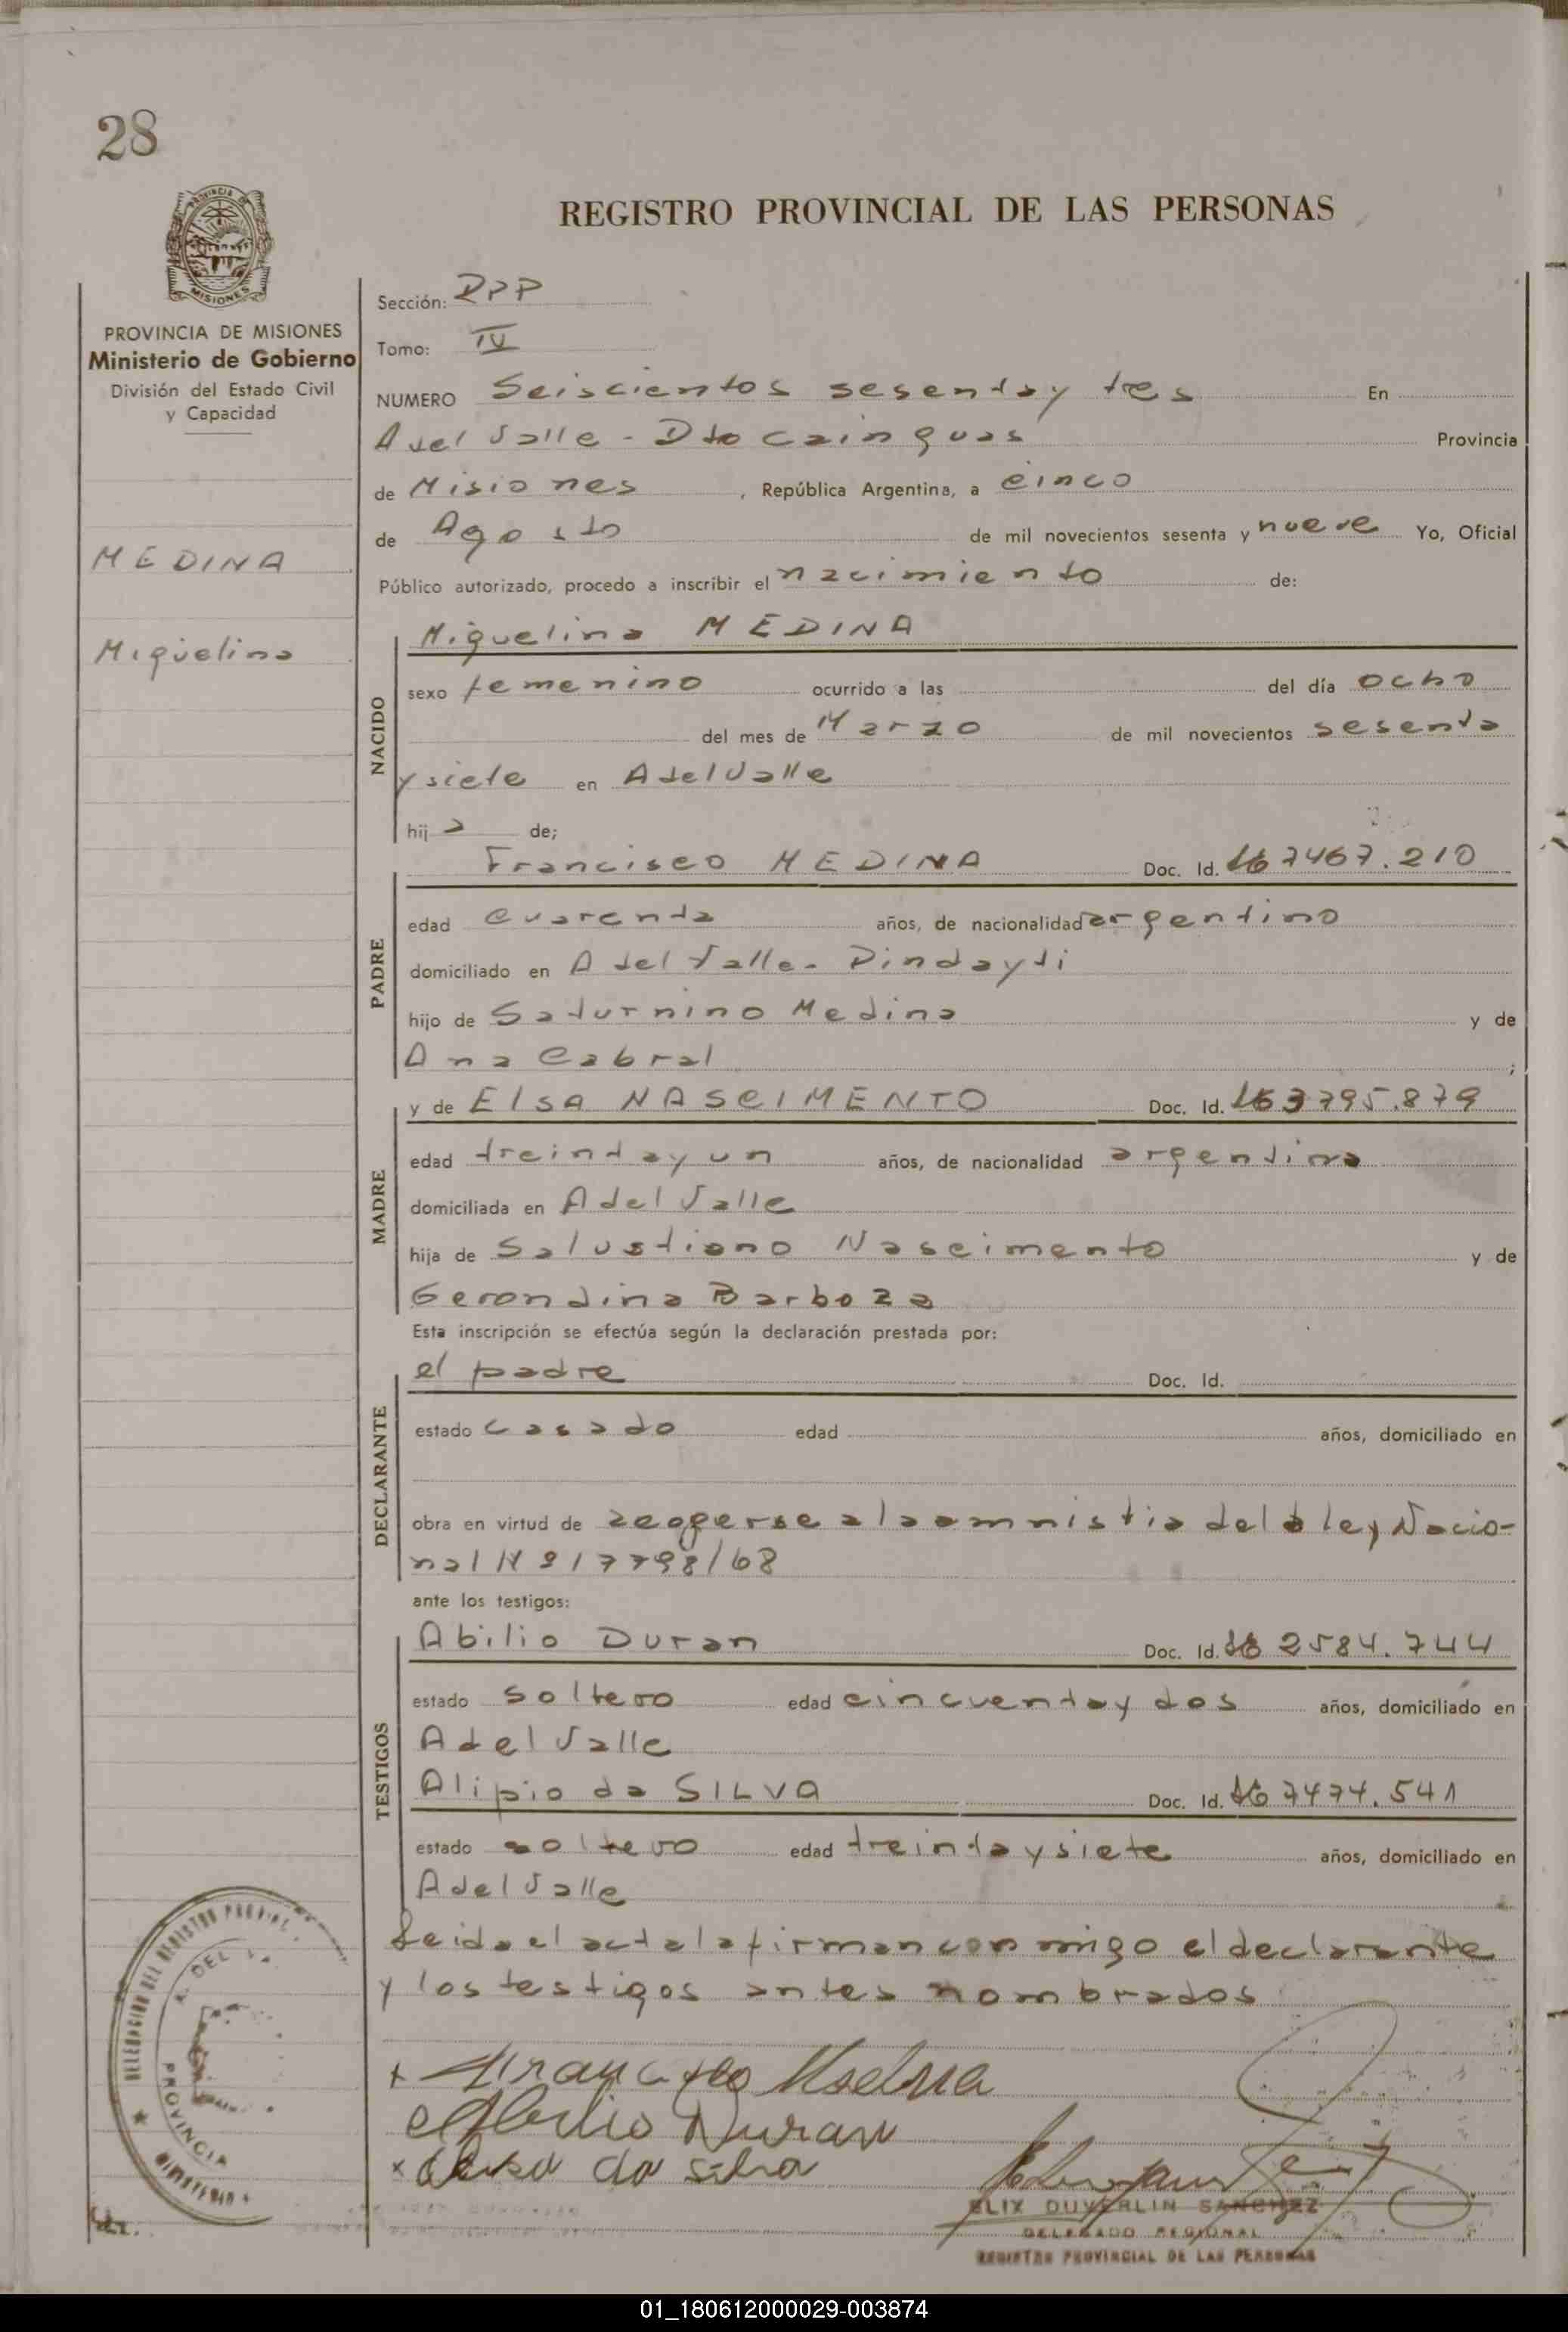 28
PROVINCIA DE
MISIONES
REGISTRO PROVINCIAL DE LAS PERSONAS
PROVINCIA DE MISIONES
Ministerio de Gobierno
División del Estado Civil
y Capacidad
MEDINA
Miguelina
Sección: RPP
Tomo: IV
NUMERO Seiscientos sesenta y tres En
A del Valle - Dto Cainguas Provincia
de Misiones , República Argentina, a cinco
de Agosto de mil novecientos sesenta y nueve Yo, Oficial
Público autorizado, procedo a inscribir el nacimiento de:
NACIDO
Miguelina MEDINA
sexo femenino ocurrido a las del día ocho
del mes de Marzo de mil novecientos sesenta
y siete en A del Valle
hij a de;
PADRE
Francisco MEDINA Doc. Id. 7467.210
edad cuarenta años, de nacionalidad argentino
domiciliado en A del Valle - Pindayti
hijo de Saturnino Medina y de
Ana Cabral ;
MADRE
y de Elsa NASCIMENTO Doc. Id. 3795.879
edad treinta y un años, de nacionalidad argentina
domiciliada en A del Valle
hija de Salustiano Nascimento y de
Gerondina Barboza
Esta inscripción se efectúa según la declaración prestada por:
DECLARANTE
el padre Doc. Id.
estado casado edad años, domiciliado en
obra en virtud de acogerse a la amnistia de la ley Nacio-
nal Nº 17798/68
ante los testigos:
TESTIGOS
Abilio Duran Doc. Id. 2584.744
estado soltero edad cincuenta y dos años, domiciliado en
A del Valle
Alipio da SILVA Doc. Id. 7474.541
estado soltero edad treinta y siete años, domiciliado en
A del Valle
Leida el acta la firman con migo el declarante
y los testigos antes nombrados
x Francisco Medina
Abilio Duran
x da silva
ELIX DUVERLIN SANCHEZ
DELEGADO REGIONAL
REGISTRO PROVINCIAL DE LAS PERSONAS
DELEGACION DEL REGISTRO PROVINC
A. DEL
PROVINCIA
MINISTERIO
01_180612000029-003874